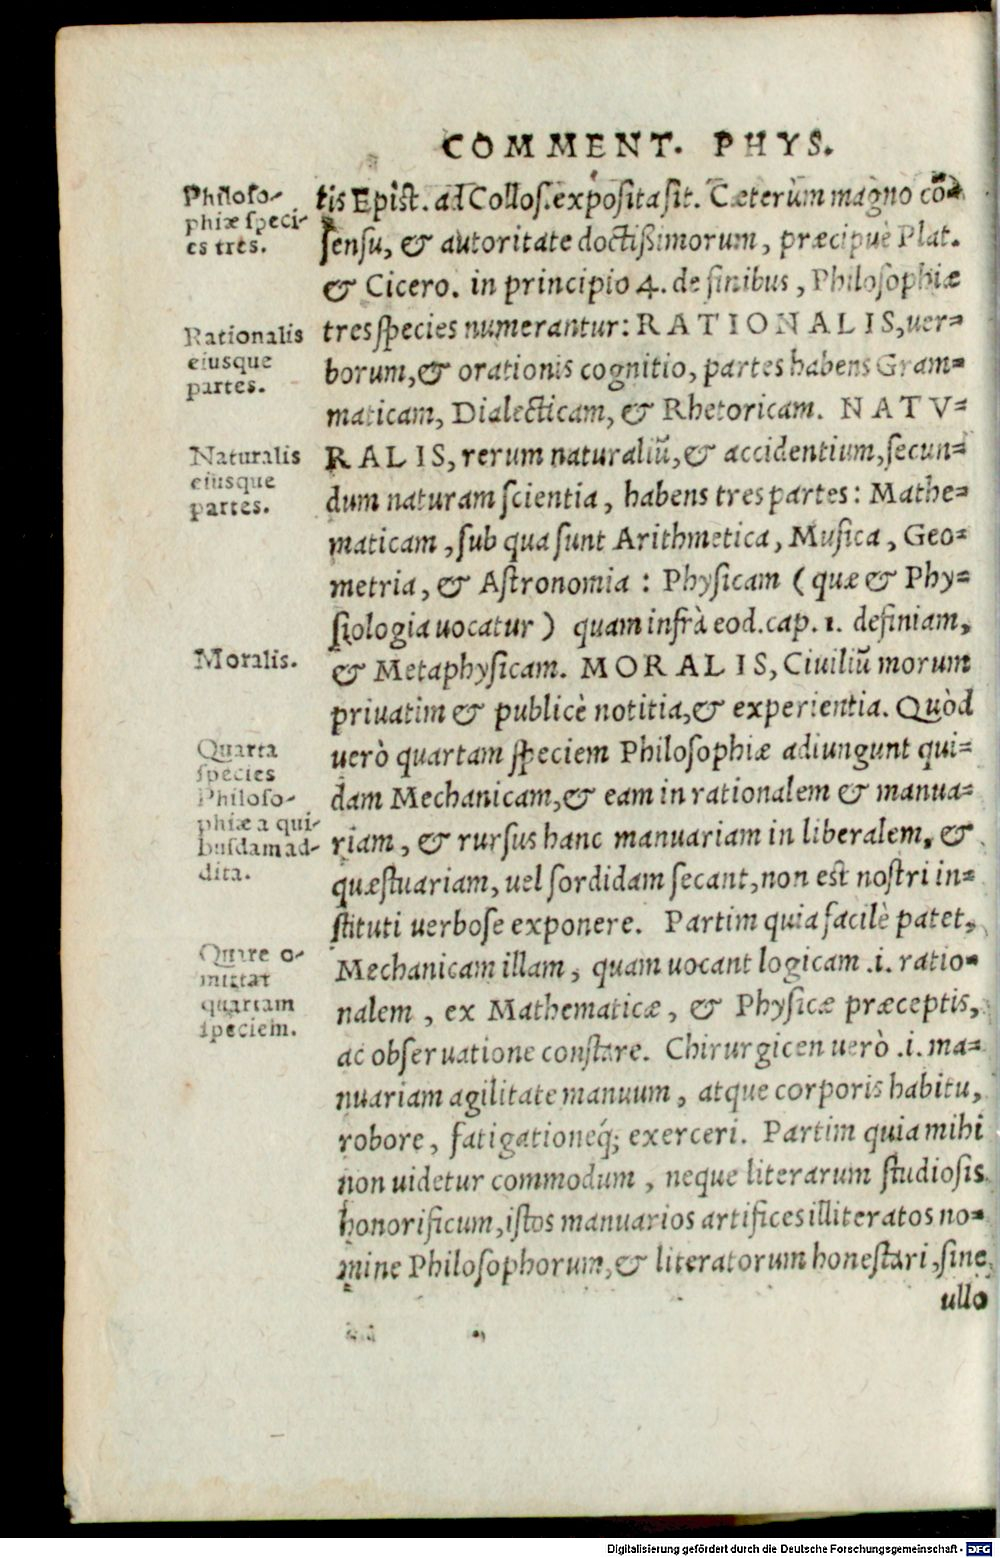 COMMENT. PHYS.
Philoso-
phiæ speci-
es tres.
tis Epist. ad Collos. exposita sit. Cæterùm magno cō=
sensu, & autoritate doctißimorum, præcipuè Plat.
& Cicero. in principio 4. de finibus, Philosophiæ
tres species numerantur: RATIONALIS, uer=
borum, & orationis cognitio, partes habens Gram=
maticam, Dialecticam, & Rhetoricam. NATV=
RALIS, rerum naturaliū, & accidentium, secun=
dum naturam scientia, habens tres partes: Mathe=
maticam, sub qua sunt Arithmetica, Musica, Geo=
metria, & Astronomia: Physicam (quæ & Phy=
siologia uocatur) quam infrà eod. cap. 1. definiam,
& Metaphysicam. MORALIS, Ciuiliū morum
priuatim & publicè notitia, & experientia. Quòd
uerò quartam speciem Philosophiæ adiungunt qui=
dam Mechanicam, & eam in rationalem & manua=
riam, & rursus hanc manuariam in liberalem, &
quæstuariam, uel sordidam secant, non est nostri in=
stituti uerbose exponere. Partim quia facilè patet,
Mechanicam illam, quam uocant logicam .i. ratio=
nalem, ex Mathematicæ, & Physicæ præceptis,
ac obseruatione constare. Chirurgicen uerò .i. ma=
nuariam agilitate manuum, atque corporis habitu,
robore, fatigationeq́; exerceri. Partim quia mihi
non uidetur commodum, neque literarum studiosis
honorificum, istos manuarios artifices illiteratos no=
mine Philosophorum, & literatorum honestari, sine
ullo
Rationalis
eiusque
partes.
Naturalis
eiusque
partes.
Moralis.
Quarta
species
Philoso-
phiæ a qui-
busdam ad-
dita.
Quare o-
mittat
quartam
speciem.
Digitalisierung gefördert durch die Deutsche Forschungsgemeinschaft - DFG